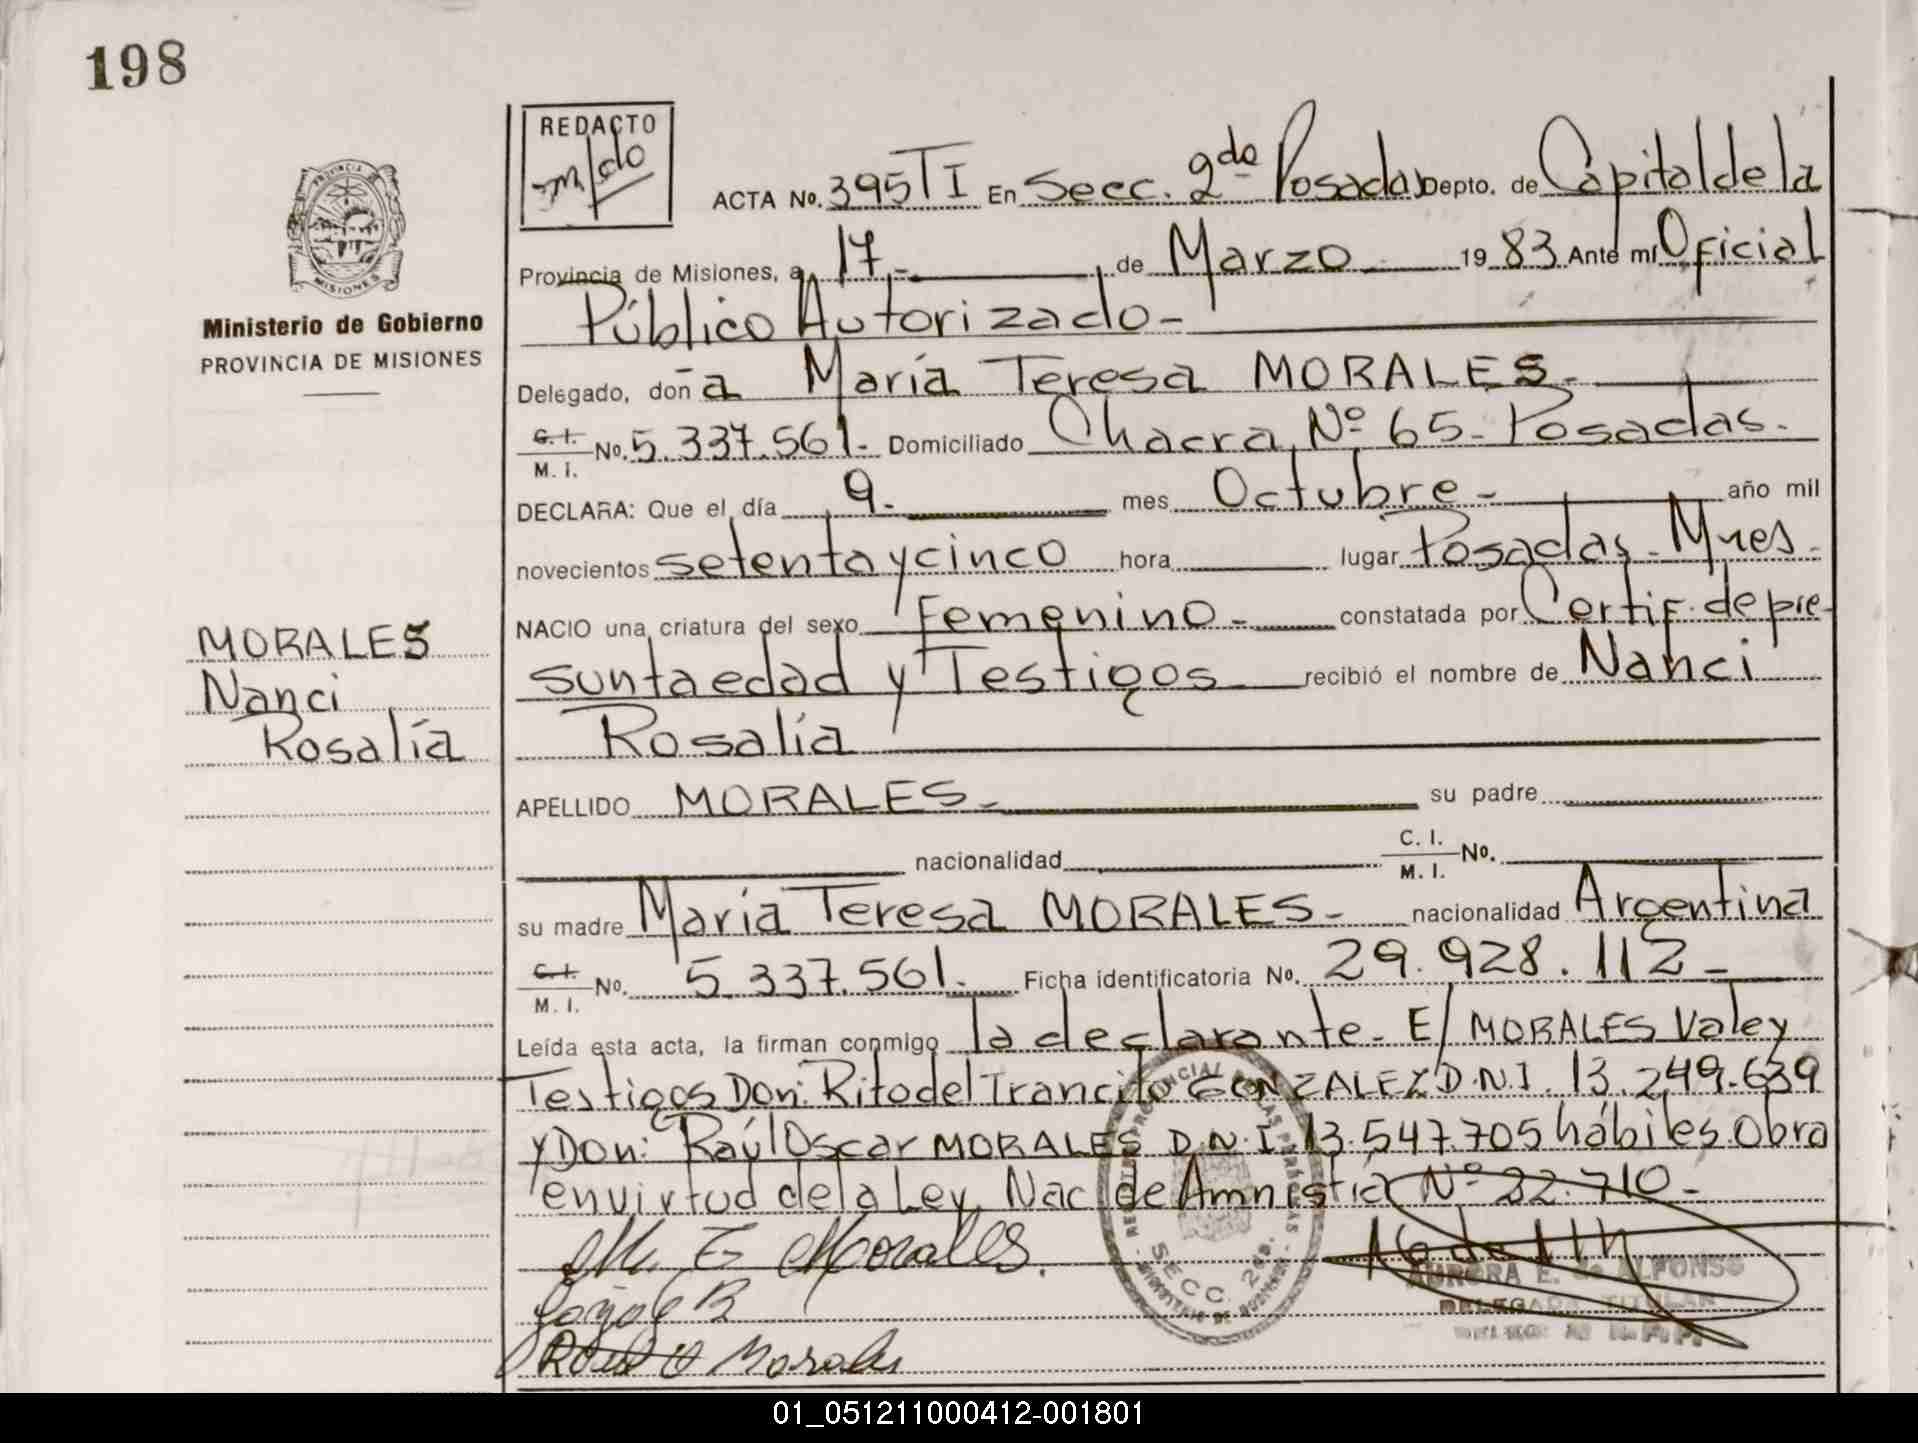 198
REDACTO
PROVINCIA DE
MISIONES
Ministerio de Gobierno
PROVINCIA DE MISIONES
ACTA No. 395 TI En Secc. 2da Posadas Depto. de Capital de la
Provincia de Misiones, a 17.- de Marzo - 1983 Ante mí Oficial
Público Autorizado -
Delegado, doña María Teresa MORALES -
C. I.
M. I. No. 5.337.561.- Domiciliado Chacra Nº 65 - Posadas.
DECLARA: Que el día 9.- mes Octubre - año mil
novecientos setenta y cinco hora lugar Posadas - Mnes.
NACIO una criatura del sexo Femenino - constatada por Certif. de pre-
sunta edad y Testigos recibió el nombre de Nanci
Rosalía
MORALES
Nanci
Rosalía
APELLIDO MORALES - su padre
nacionalidad C. I.
M. I. No.
su madre María Teresa MORALES - nacionalidad Argentina
C. I.
M. I. No. 5.337.561.- Ficha identificatoria No. 29.928.112 -
Leída esta acta, la firman conmigo la declarante - E/ MORALES Vale y
Testigos Don: Rito del Trancito GONZALEZ D.N.I. 13.249.639
y Don: Raúl Oscar MORALES D.N.I. 13.547.705 hábiles. Obra
en virtud de la Ley Nac. de Amnistía Nº 22.710 -
M. T. Morales.
Raul O Morales
SECC. 2da.
AURORA E. de ALFONSO
DELEGADA TITULAR
01_051211000412-001801